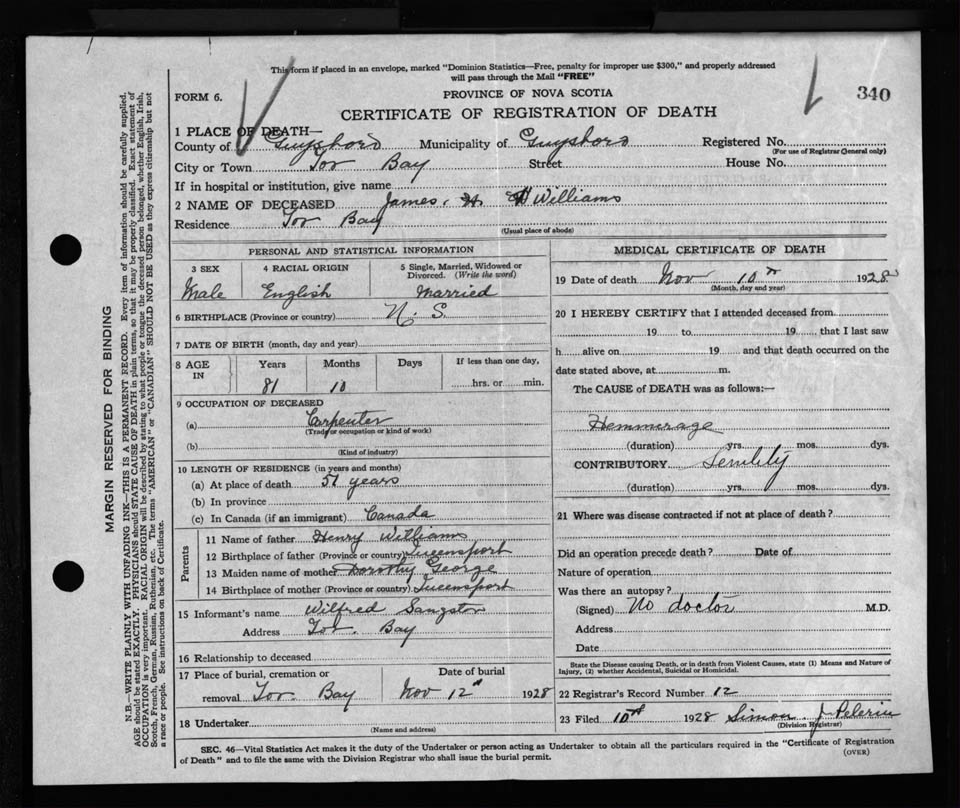 This form if placed in an envelope, marked "Dominion Statistics—Free, penalty for improper use $300," and properly addressed
will pass through the Mail "FREE"
FORM 6.
PROVINCE OF NOVA SCOTIA
340
CERTIFICATE OF REGISTRATION OF DEATH
1 PLACE OF DEATH—
County of Guysboro Municipality of Guysboro Registered No.
(For use of Registrar General only)
City or Town Tor Bay Street House No.
If in hospital or institution, give name
2 NAME OF DECEASED James H Williams
Residence Tor Bay
(Usual place of abode)
PERSONAL AND STATISTICAL INFORMATION
3 SEX 4 RACIAL ORIGIN 5 Single, Married, Widowed or Divorced. (Write the word)
Male English Married
6 BIRTHPLACE (Province or country) N. S.
7 DATE OF BIRTH (month, day and year)
8 AGE IN Years Months Days If less than one day,
81 10 hrs. or min.
9 OCCUPATION OF DECEASED
(a) Carpenter
(Trade or occupation or kind of work)
(b)
(Kind of industry)
10 LENGTH OF RESIDENCE (in years and months)
(a) At place of death 51 years
(b) In province
(c) In Canada (if an immigrant) Canada
Parents
11 Name of father Henry Williams
12 Birthplace of father (Province or country) Queensport
13 Maiden name of mother Dorothy George
14 Birthplace of mother (Province or country) Queensport
15 Informant's name Wilfred Sangster
Address Tor Bay
16 Relationship to deceased
17 Place of burial, cremation or Date of burial
removal Tor Bay Nov 12th 1928
18 Undertaker
(Name and address)
MEDICAL CERTIFICATE OF DEATH
19 Date of death Nov 10th 1928
(Month, day and year)
20 I HEREBY CERTIFY that I attended deceased from
19 to 19 that I last saw
h alive on 19 and that death occurred on the
date stated above, at m.
The CAUSE of DEATH was as follows:—
Hemmerage
(duration) yrs. mos. dys.
CONTRIBUTORY
(duration) yrs. mos. dys.
21 Where was disease contracted if not at place of death?
Did an operation precede death? Date of
Nature of operation
Was there an autopsy?
(Signed) No doctor M.D.
Address
Date
State the Disease causing Death, or in death from Violent Causes, state (1) Means and Nature of
Injury, (2) whether Accidental, Suicidal or Homicidal.
22 Registrar's Record Number 12
23 Filed 10th 1928 Simon J Pelerin
(Division Registrar)
SEC. 46—Vital Statistics Act makes it the duty of the Undertaker or person acting as Undertaker to obtain all the particulars required in the "Certificate of Registration
of Death" and to file the same with the Division Registrar who shall issue the burial permit.
(OVER)
MARGIN RESERVED FOR BINDING
N.B.—WRITE PLAINLY WITH UNFADING INK—THIS IS A PERMANENT RECORD. Every item of information should be carefully supplied.
AGE should be stated EXACTLY. PHYSICIANS should STATE CAUSE OF DEATH in plain terms, so that it may be properly classified. Exact statement of
OCCUPATION is very important. RACIAL ORIGIN will be described by stating to what people or tongue the deceased person belonged, whether English, Irish,
Scotch, French, German, Russian, Ruthenian, etc. The terms "AMERICAN" or "CANADIAN" SHOULD NOT BE USED as they express citizenship but not
a race or people. See instructions on back of Certificate.